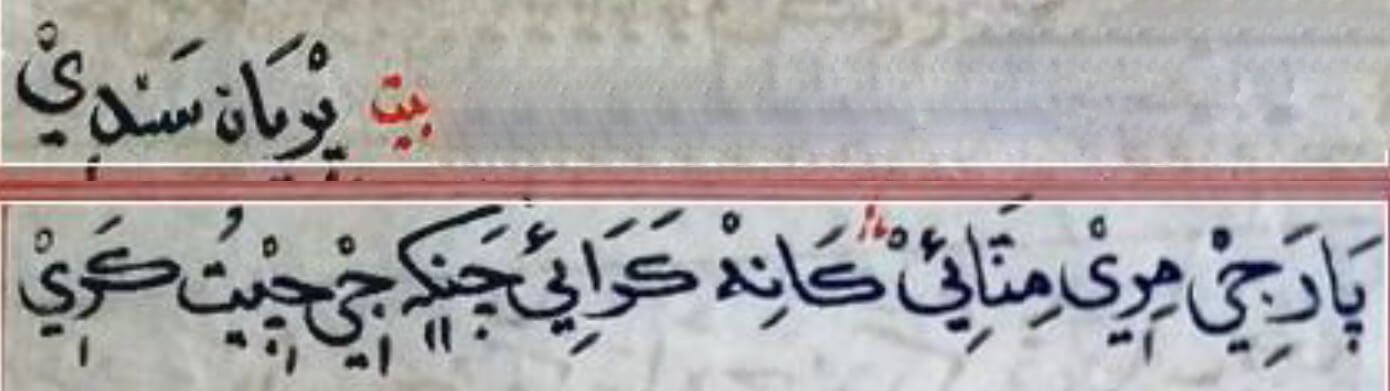 بيت يومان سندي
پارجي مري متائي کانه کرائي جنکہ جي جيت کري